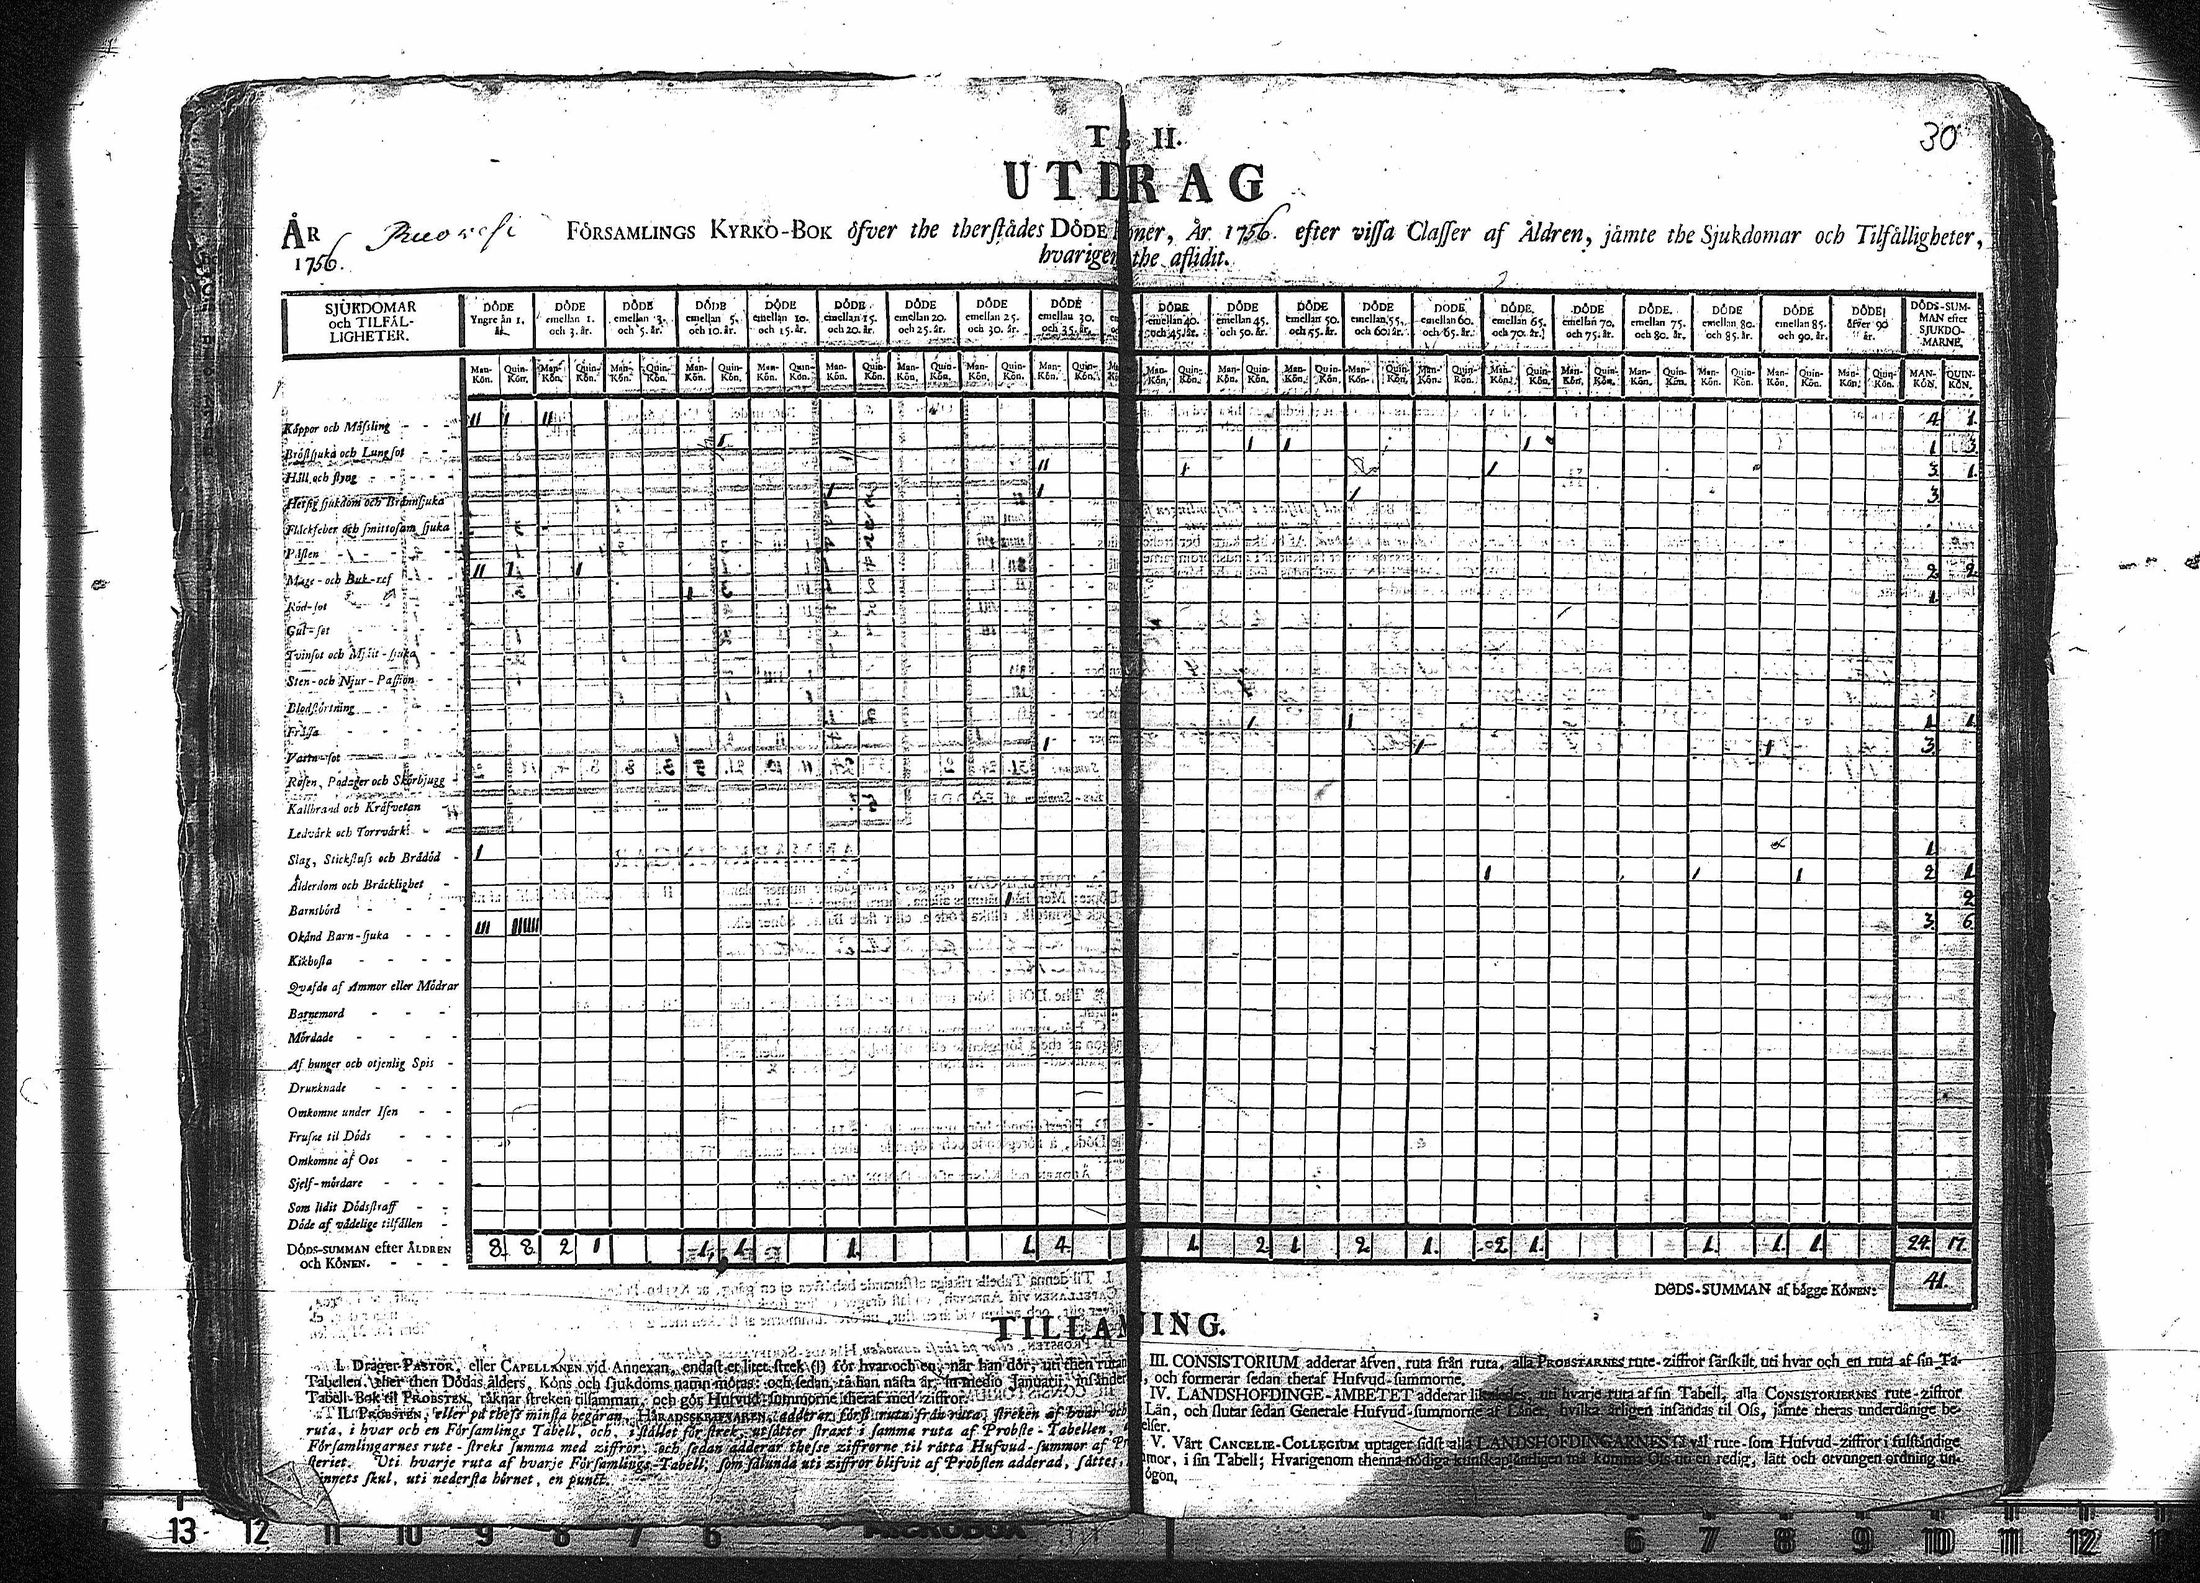 30
T H.
UTDRAG
ÅR 1756. Ruovesi FÖRSAMLINGS KYRKO-BOK öfver the therstädes DÖDE År 1756. efter vissa Classer af Åldren, jämte the Sjukdomar och Tilfälligheter,
the aflidit.
SJUKDOMAR och TILFÄLLIGHETER. DÖDE Yngre än 1. år. DÖDE emellan 1. och 3. år. DÖDE emellan 3. och 5. år. DÖDE emellan 5. och 10. år. DÖDE emellan 10. och 15. år. DÖDE emellan 15. och 20. år. DÖDE emellan 20. och 25. år. DÖDE emellan 25. och 30. år. DÖDE emellan 30. och 35. år. DÖDE emellan 40. och 45. år. DÖDE emellan 45. och 50. år. DÖDE emellan 50. och 55. år. DÖDE emellan 55. och 60. år. DÖDE emellan 60. och 65. år. DÖDE emellan 65. och 70. år. DÖDE emellan 70. och 75. år. DÖDE emellan 75. och 80. år. DÖDE emellan 80. och 85. år. DÖDE emellan 85. och 90. år. DÖDE öfver 90 år. DÖDS-SUMMAN efter SJUKDOMARNE.
Man-Kön. Quin-Kön. Man-Kön. Quin-Kön. Man-Kön. Quin-Kön. Man-Kön. Quin-Kön. Man-Kön. Quin-Kön. Man-Kön. Quin-Kön. Man-Kön. Quin-Kön. Man-Kön. Quin-Kön. Man-Kön. Quin-Kön. Man-Kön. Quin-Kön. Man-Kön. Quin-Kön. Man-Kön. Quin-Kön. Man-Kön. Quin-Kön. Man-Kön. Quin-Kön. Man-Kön. Quin-Kön. Man-Kön. Quin-Kön. Man-Kön. Quin-Kön. Man-Kön. Quin-Kön. Man-Kön. Quin-Kön. Man-Kön. Quin-Kön. MAN-KÖN. QUIN-KÖN.
Koppor och Mässling - - - II I II 4. 1.
Bröstsjuka och Lungsot - - I I I I 1. 3.
Håll och styng - - - - - II I I 3. 1.
Hetsig sjukdom och Brännsjuka I I I 3.
Fläckfeber och smittosam sjuka
Pästen - - - -
Mage- och Buk-ref - - II I I 2. 2.
Röd-sot - - - I 1.
Gul-sot - - -
Tvinsot och Mjält-sjuka -
Sten- och Njur-Passion - -
Blodstörtning - - -
Frässa - - - I I 1. 1.
Vattu-sot - - - I I I 3.
Rosen, Podager och Skörbjugg -
Kallbrand och Kräfvetan
Ledvärk och Torrvärk - -
Slag, Stickfluss och Brådöd - I 1.
Ålderdom och Bräcklighet - I I I 2. 1.
Barnsbörd - - - - I 2.
Okänd Barn-sjuka - - - III IIIIII 3. 6.
Kikhosta - - - -
Qvafde af Ammor eller Mödrar
Barnemord - - -
Mördade - - - -
Af hunger och otjenlig Spis -
Drunknade - - - -
Omkomne under Isen - -
Frusne til Döds - - -
Omkomne af Oos - -
Sjelf-mördare - - -
Som lidit Dödsstraff - -
Döde af vådelige tilfällen -
DÖDS-SUMMAN efter ÅLDREN och KÖNEN. - - - 8. 8. 2 1 1. 1. 1. 1. 4. 1. 2. 1. 2. 1. 2. 1. 1. 1. 1. 24. 17.
DÖDS-SUMMAN af bägge KÖNEN: 41.
I. Drager PASTOR, eller CAPELLANEN vid Annexan, endast et litet strek (I) för hvar och en, när han dör, uti then
Tabellen, efter then Dödas ålders, Köns och sjukdoms namn mötas: och sedan, tå han nästa år, in medio Januarii,
Tabell-Bok til PROBSTEN, räknar streken tillsamman, och gör Hufvud-summorne theraf med ziffror.
II. PROBSTEN, eller på thess minsta begäran, HÄRADSSKRIFVAREN, adderar först ruta från ruta, streken af hvar och
ruta, i hvar och en Församlings Tabell, och, i stället för strek, utsätter straxt i samma ruta af Probste-Tabellen,
Församlingarnes rute-streks summa med ziffror; och sedan adderar thesse ziffrorne til rätta Hufvud-summor af
steriet. Uti hvarje ruta af hvarje Församlings-Tabell, som sålunda uti ziffror blifvit af Probsten adderad, sättes,
minnets skul, uti nedersta hörnet, en punct.
III. CONSISTORIUM adderar äfven, ruta från ruta, alla PROBSTARNES rute-ziffror särskilt, uti hvar och en ruta af sin Ta-
, och formerar sedan theraf Hufvud-summorne.
IV. LANDSHÖFDINGE-ÄMBETET adderar likaledes, uti hvarje ruta af sin Tabell, alla CONSISTORIERNES rute-ziffror
Län, och slutar sedan Generale Hufvud-summorne af Länet, hvilka årligen insändas til Oss, jämte theras underdånige be-
elser.
V. Vårt CANCELIE-COLLEGIUM uptager sidst alla LANDSHÖFDINGARNES så väl rute- som Hufvud-ziffror i fulständige
, i sin Tabell; Hvarigenom thenna nödiga kunskap ändteligen må komma Oss uti en redig, lätt och otvungen ordning un-
ögon,
13 12 11 10 9 8 7 6
6 7 8 9 10 11 12